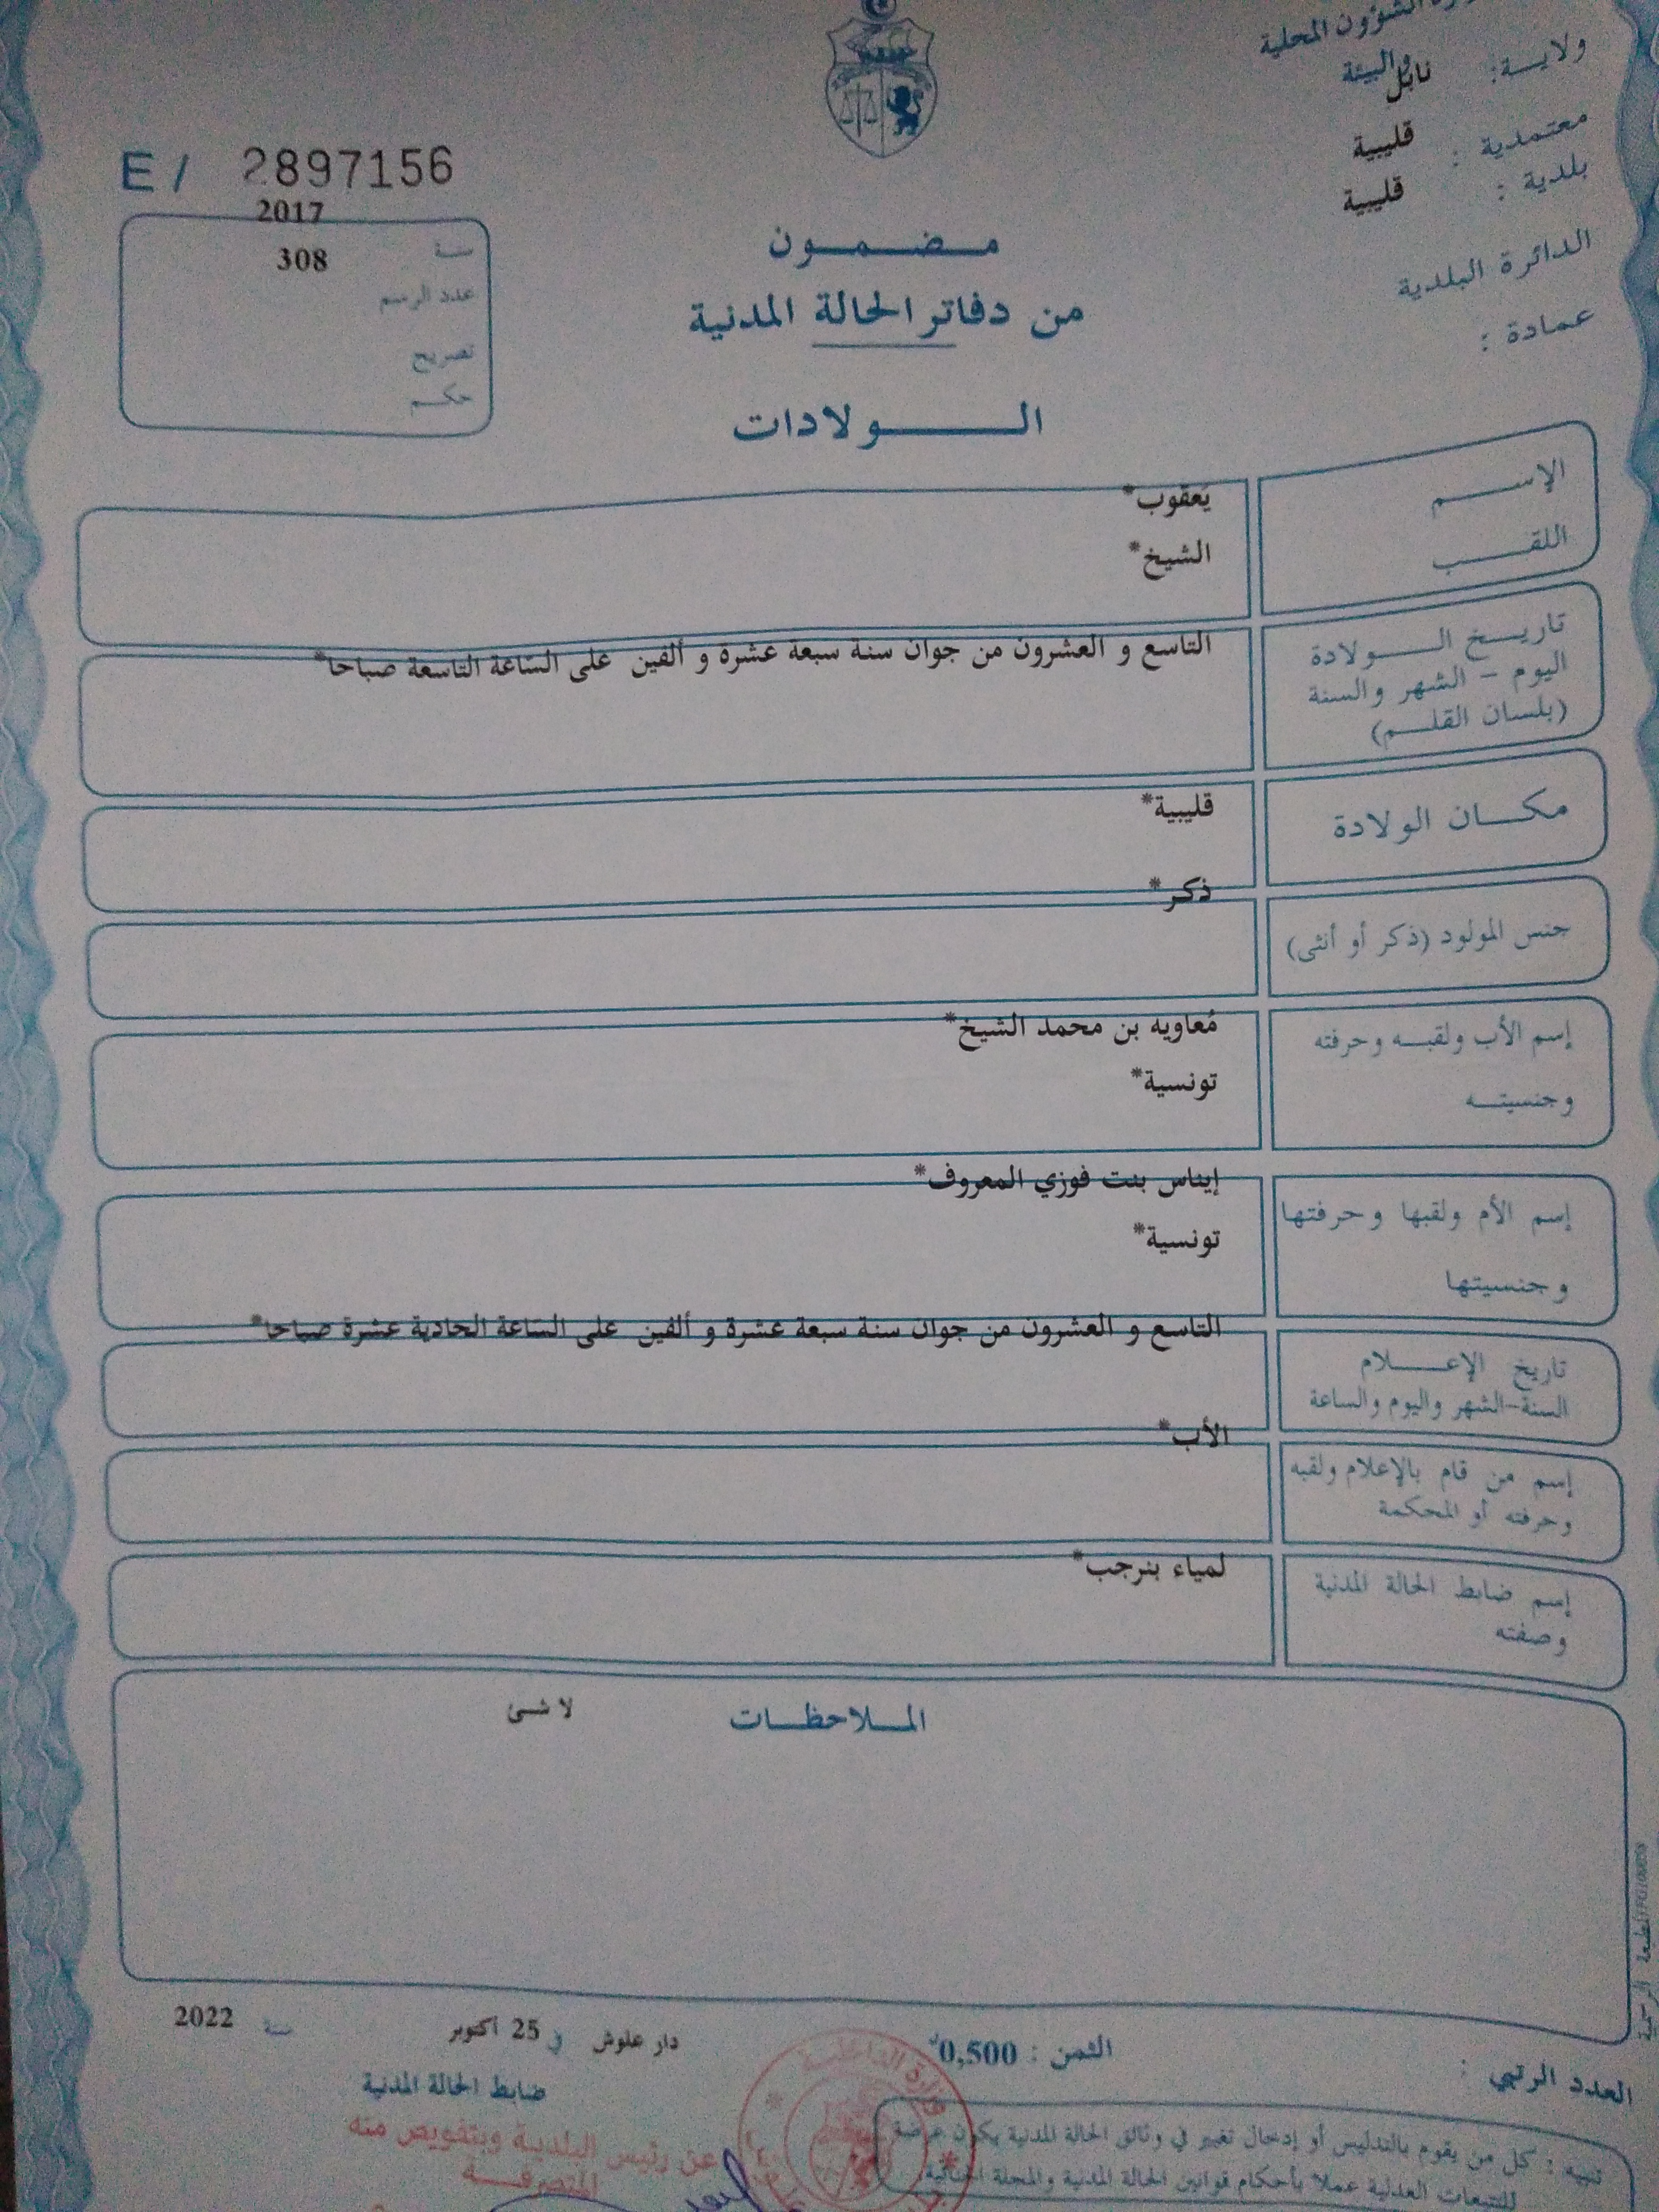 الشؤون المحلية
والبيئة
ولايـــة: نابل
معتمدية : قليبية
بلدية : قليبية
الدائرة البلدية
عمادة :
E / 2897156
2017
سنـــة
308
عدد الرسم
تصريح
حكـــم
مـــضـــمـــون
من دفاتر الحالة المدنية
الـــــولادات
الإســـــم يَعقوب*
اللقـــــب الشيخ*
تاريـــخ الـــــولادة
اليوم – الشهر والسنة
(بلسان القلـــم)
التاسع و العشرون من جوان سنة سبعة عشرة و ألفين على السّاعة التاسعة صباحا*
مكـــان الولادة
قليبية*
جنس المولود (ذكر أو أنثى)
ذكر*
إسم الأب ولقبـــه وحرفته
مُعاويه بن محمد الشيخ*
وجنسيتـــه
تونسية*
إسم الأم ولقبها وحرفتها
إيناس بنت فوزي المعروف*
وجنسيتها
تونسية*
تاريخ الإعـــــلام
السنة-الشهر واليوم والساعة
التاسع و العشرون من جوان سنة سبعة عشرة و ألفين على السّاعة الحادية عشرة صباحا*
إسم من قام بالإعلام ولقبه
وحرفته أو المحكمة
الأب*
إسم ضابط الحالة المدنية
وصفته
لمياء بنرجب*
المـــلاحظـــات
لا شـــئ
المطبعة الرسمية
العدد الرتبي :
الثمن : 0,500د
دار علوش في 25 أكتوبر سنة 2022
ضابط الحالة المدنية
عن رئيس البلدية وبتفويض منه
المتصرفـــة
وزارة الداخليـــة
تنبيه : كل من يقوم بالتدليس أو إدخال تغيير في وثائق الحالة المدنية يكون عرضة
للتتبعات العدلية عملا بأحكام قوانين الحالة المدنية والمجلة الجنائية.